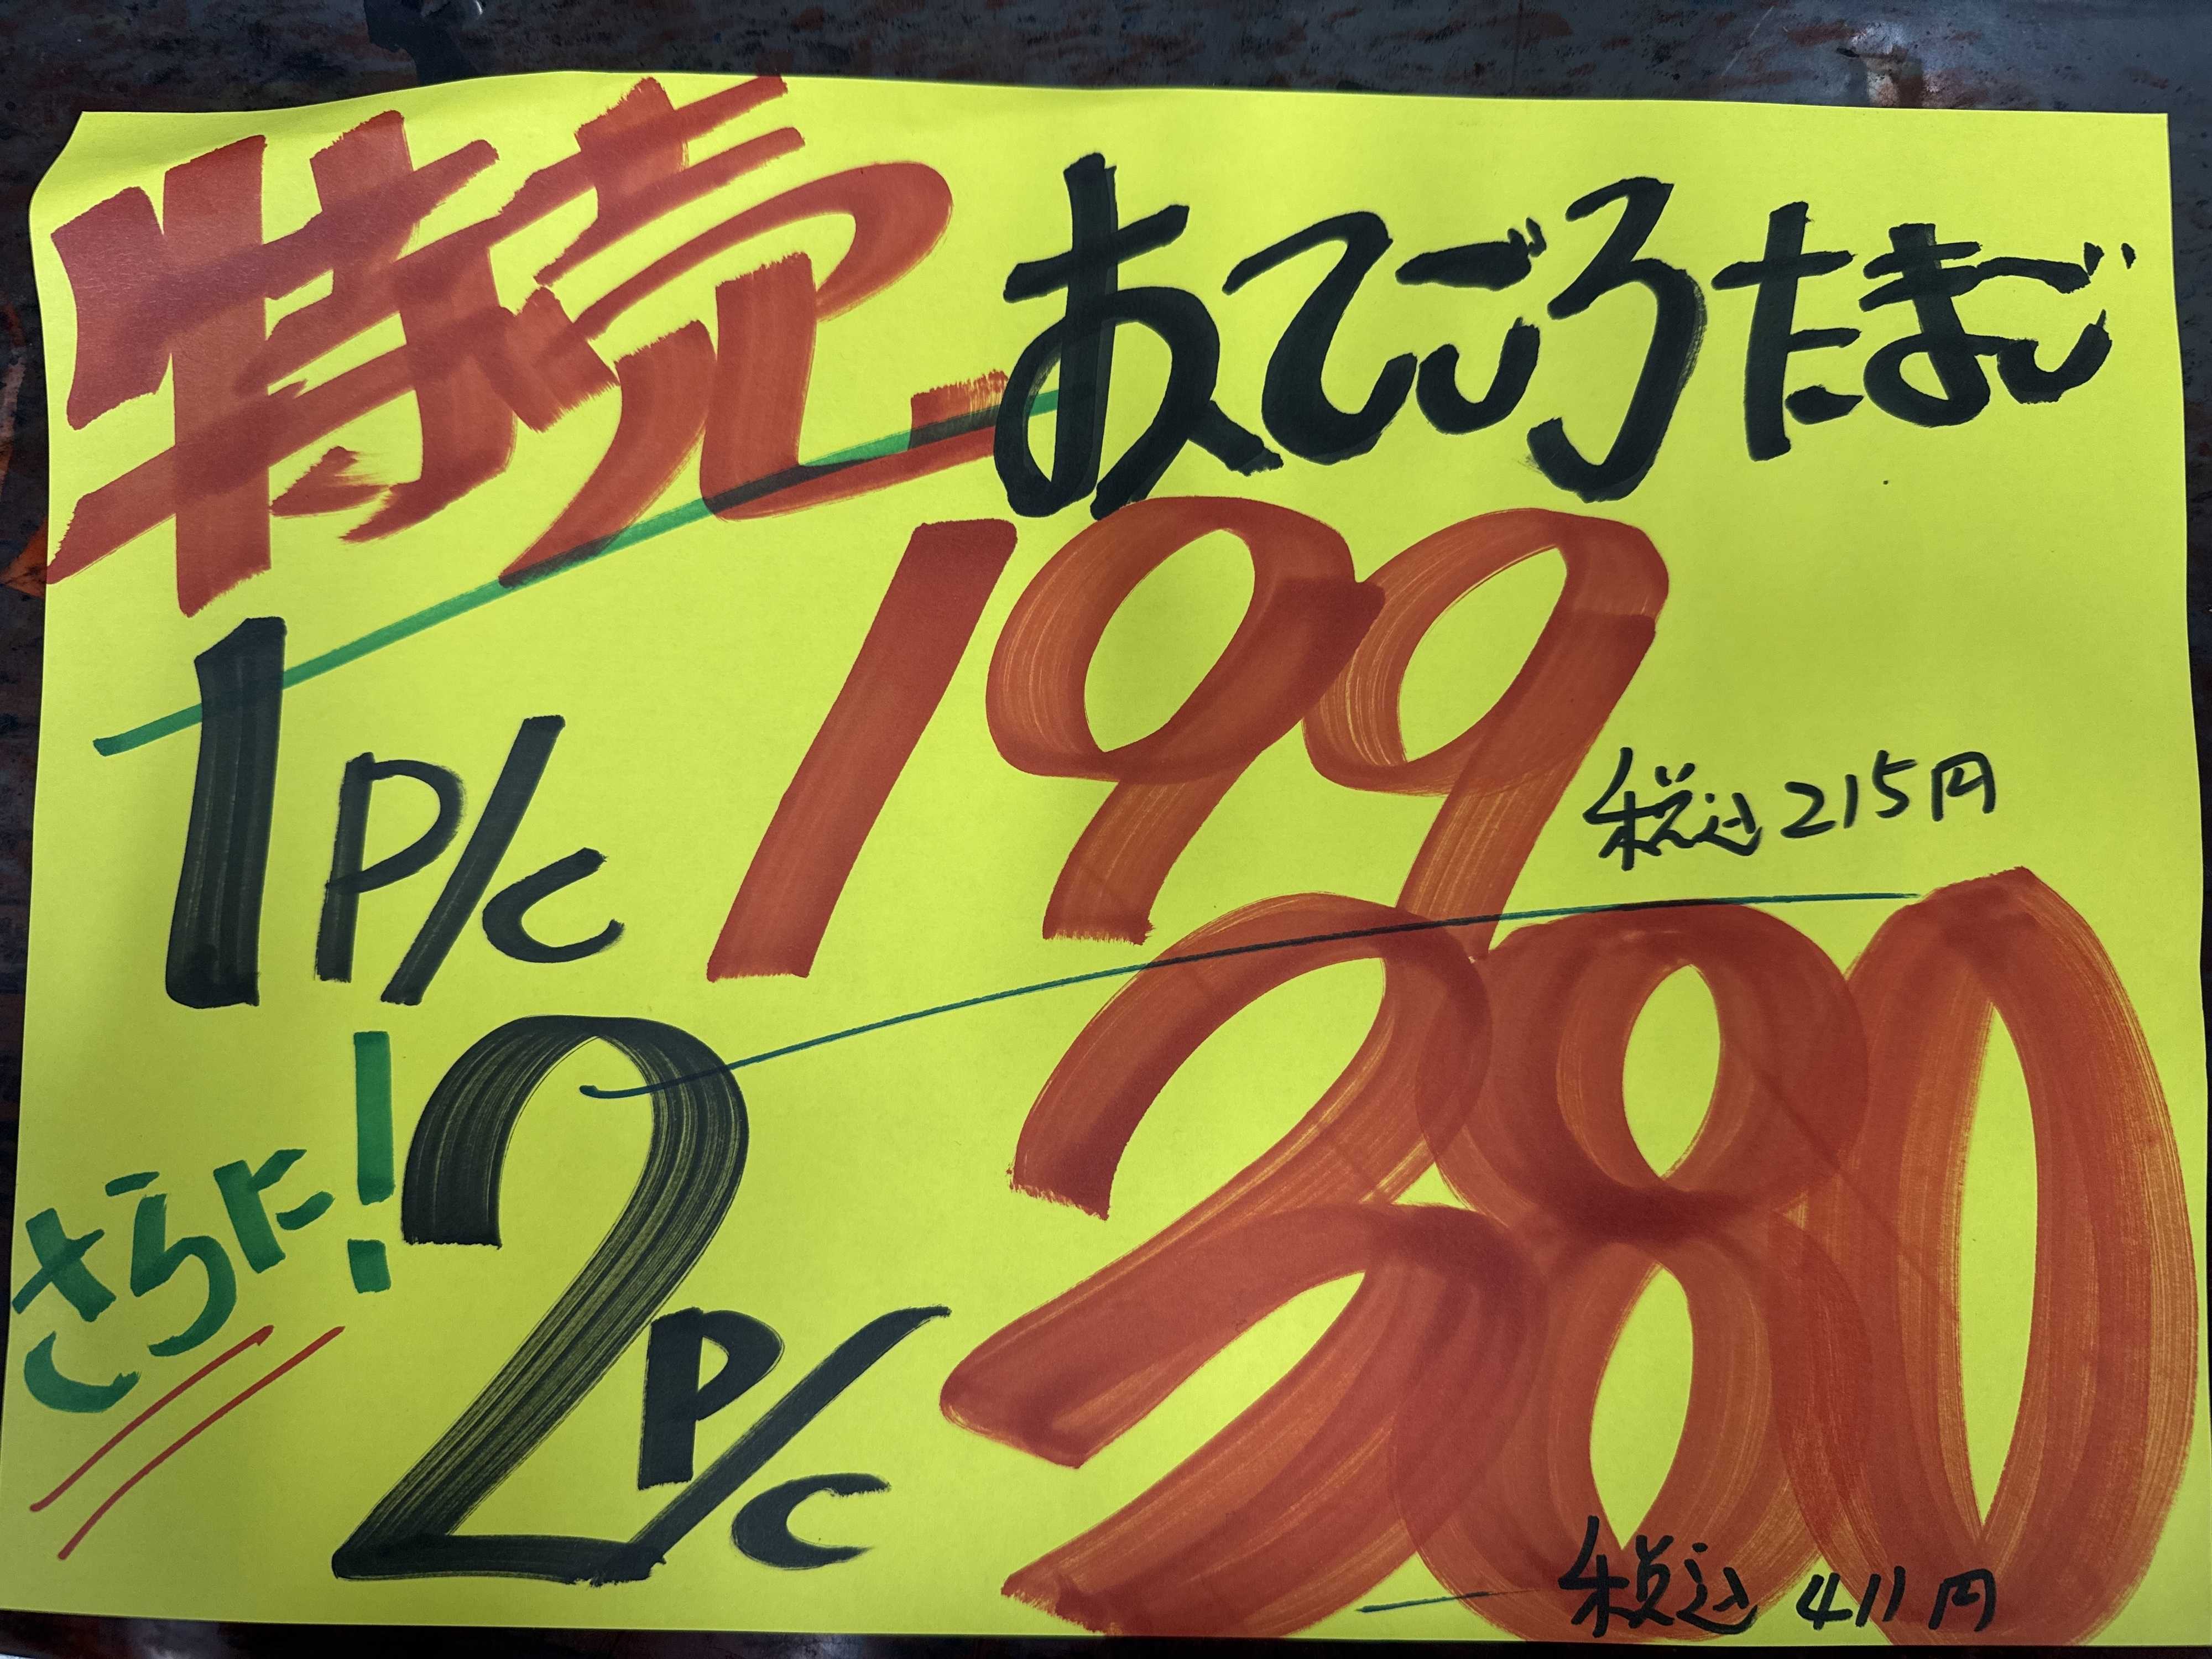 特売 おてごろたまご
1P/c 199
税込215円
さらに! 2P/c 380
税込411円